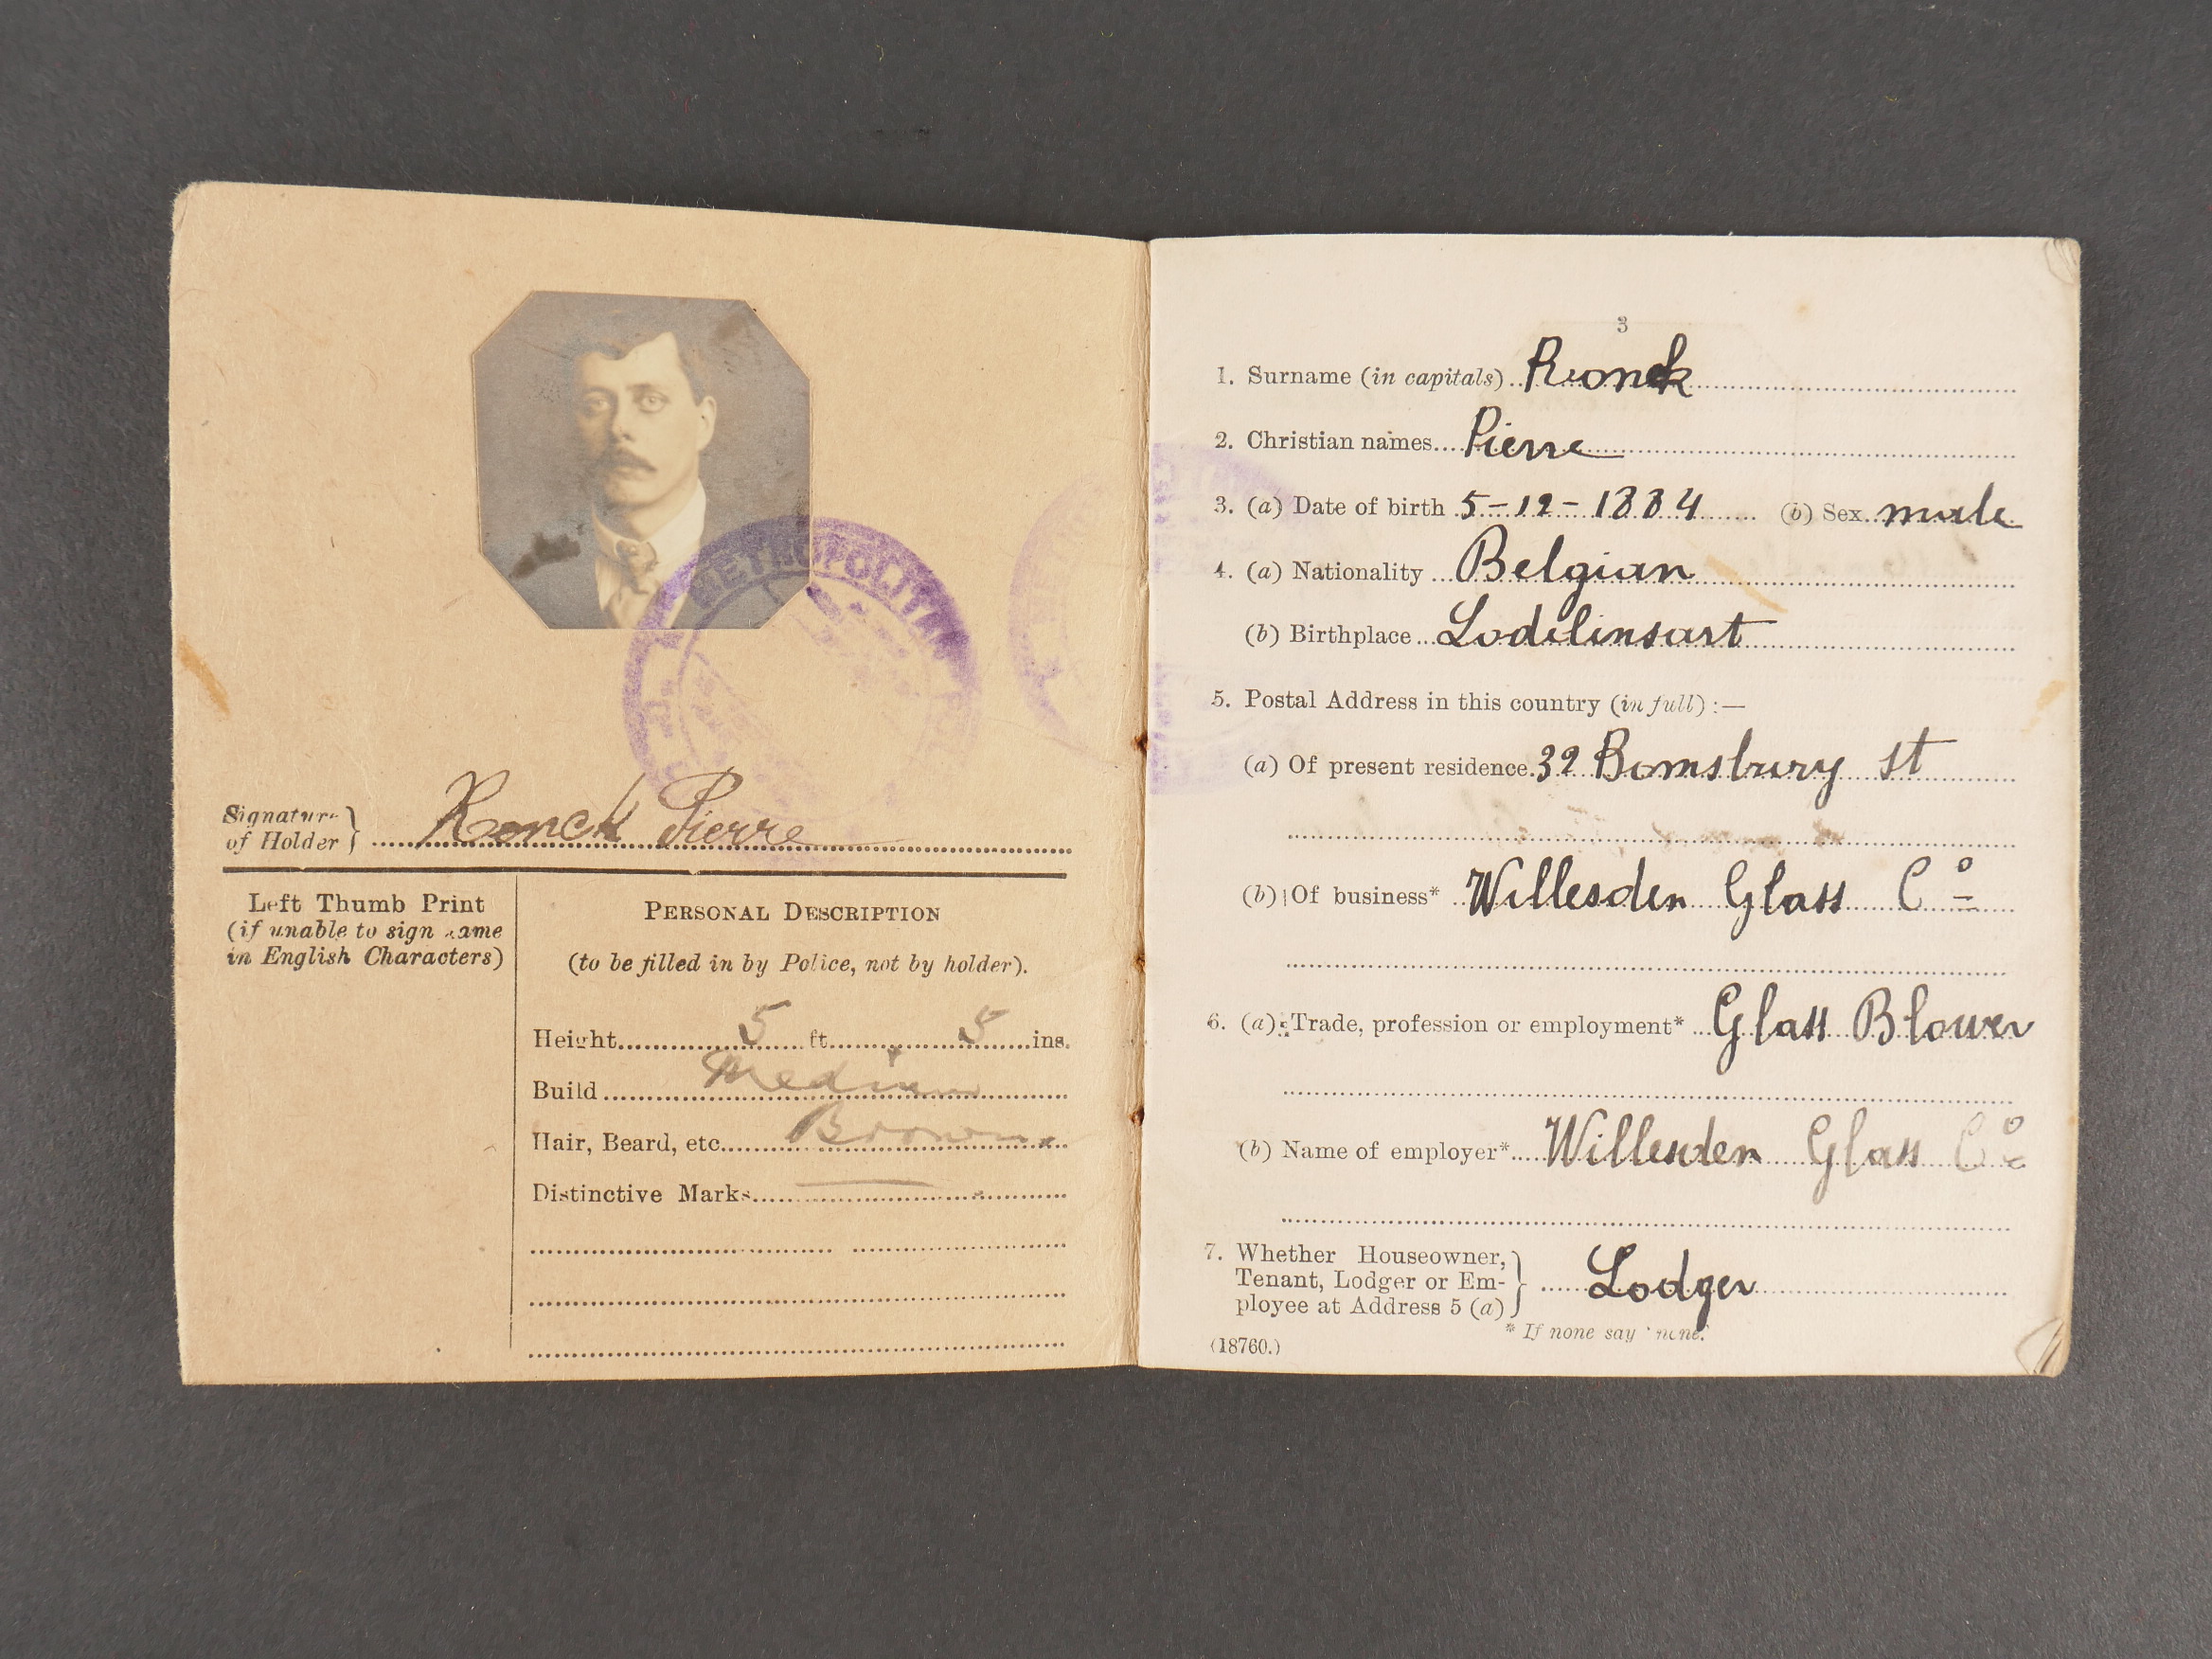 METROPOLITAN
Signature
of Holder } Ronck Pierre
Left Thumb Print
(if unable to sign name
in English Characters)
PERSONAL DESCRIPTION
(to be filled in by Police, not by holder).
Height 5 ft. 5 ins.
Build Medium
Hair, Beard, etc. Brown
Distinctive Marks
3
1. Surname (in capitals) Ronck
2. Christian names Pierre
3. (a) Date of birth 5-12-1884 (b) Sex male
4. (a) Nationality Belgian
(b) Birthplace Lodelinsart
5. Postal Address in this country (in full) :—
(a) Of present residence 32 Bomsbury st
(b) Of business* Willesden Glass Co
6. (a) Trade, profession or employment* Glass Blower
(b) Name of employer* Willesden Glass Co
7. Whether Houseowner,
Tenant, Lodger or Em-
ployee at Address 5 (a) } Lodger
* If none say 'none.'
(18760.)